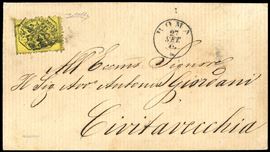 ROMA
27
SET
All' Eccmo Signore
Il Sig Avv Antonio Giordani
Civitavecchia